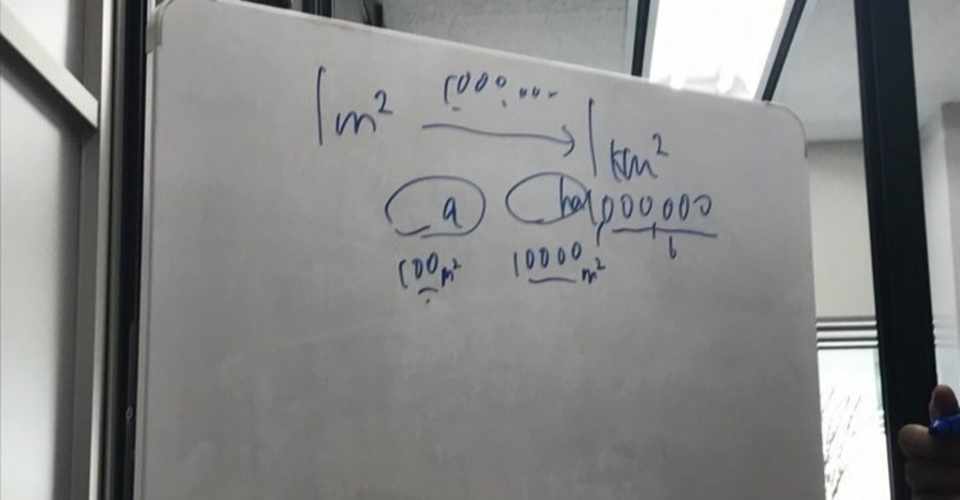 1m² 1000,000 → 1km²
a ha 1,000,000
100m² 10000m² 6